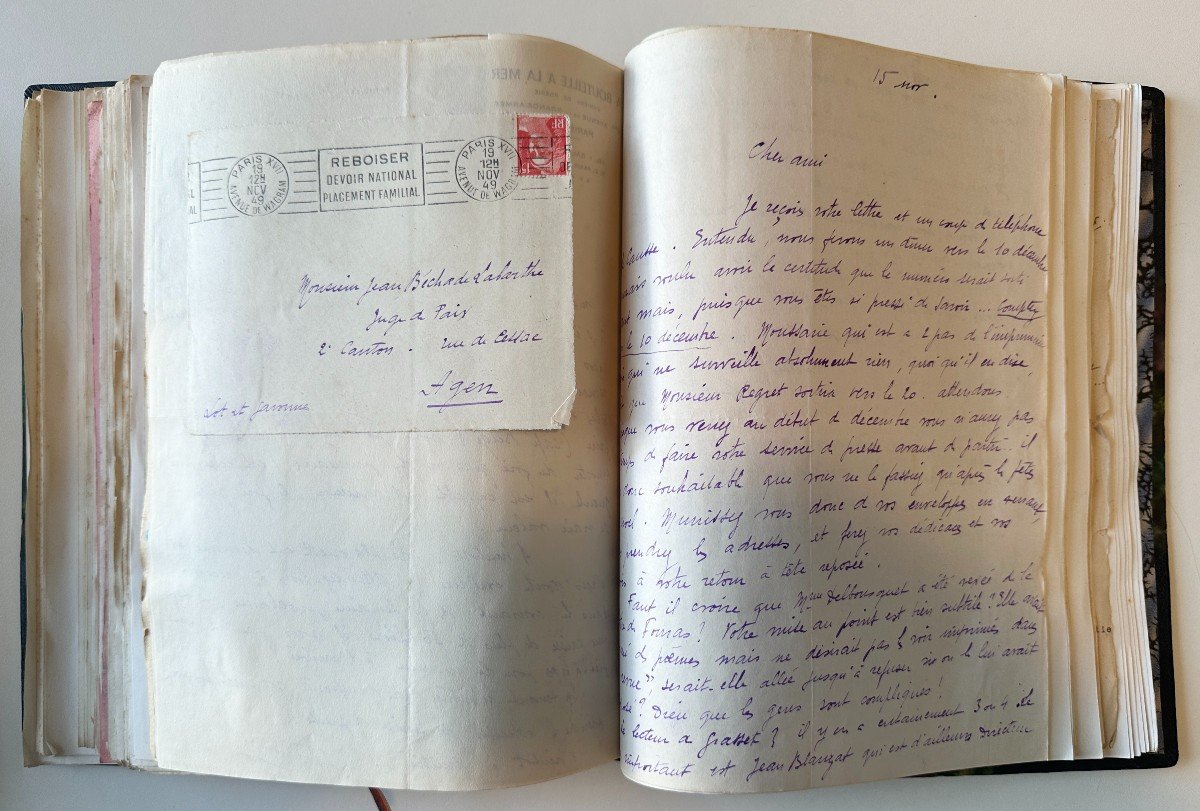 BOUTEILLE A LA MER
PARIS XVII
19
12H
NOV
49
AVENUE DE WAGRAM
REBOISER
DEVOIR NATIONAL
PLACEMENT FAMILIAL
PARIS XVII
19
12H
NOV
49
AVENUE DE WAGRAM
RF
Monsieur Jean Béchade Labarthe
Juge de Paix
2e Canton. rue de Cessac
Agen
Lot et Garonne
15 nov.
Cher ami
Je reçois votre lettre et un coup de téléphone
Entendu, nous ferons un dîner vers le 10 décembre
voulu avoir la certitude que le numéro serait sorti
mais, puisque vous êtes si pressé de savoir... Comptez
le 10 décembre. Moussarie qui est à 2 pas de l'imprimerie
qui ne surveille absolument rien, quoi qu'il en dise,
que Monsieur Regret sortira vers le 20. attendons
vous venez au début de décembre vous n'aurez pas
de faire votre service de presse avant de partir. il
souhaitable que vous ne le fassiez qu'après les fêtes
Munissez vous donc de vos enveloppes en venant,
les adresses, et ferez vos dédicaces et vos
à votre retour à tête reposée.
Faut il croire que Mme Delbousquet a été vexée de la
de Fourras? Votre mise au point est bien subtile? Elle avait
des poèmes mais ne désirait pas les voir imprimés dans
serait-elle allée jusqu'à refuser si on le lui avait
? Dieu que les gens sont compliqués!
lecteur de Grasset? il y en a certainement 3 ou 4. le
important est Jean Blanzat qui est d'ailleurs Directeur